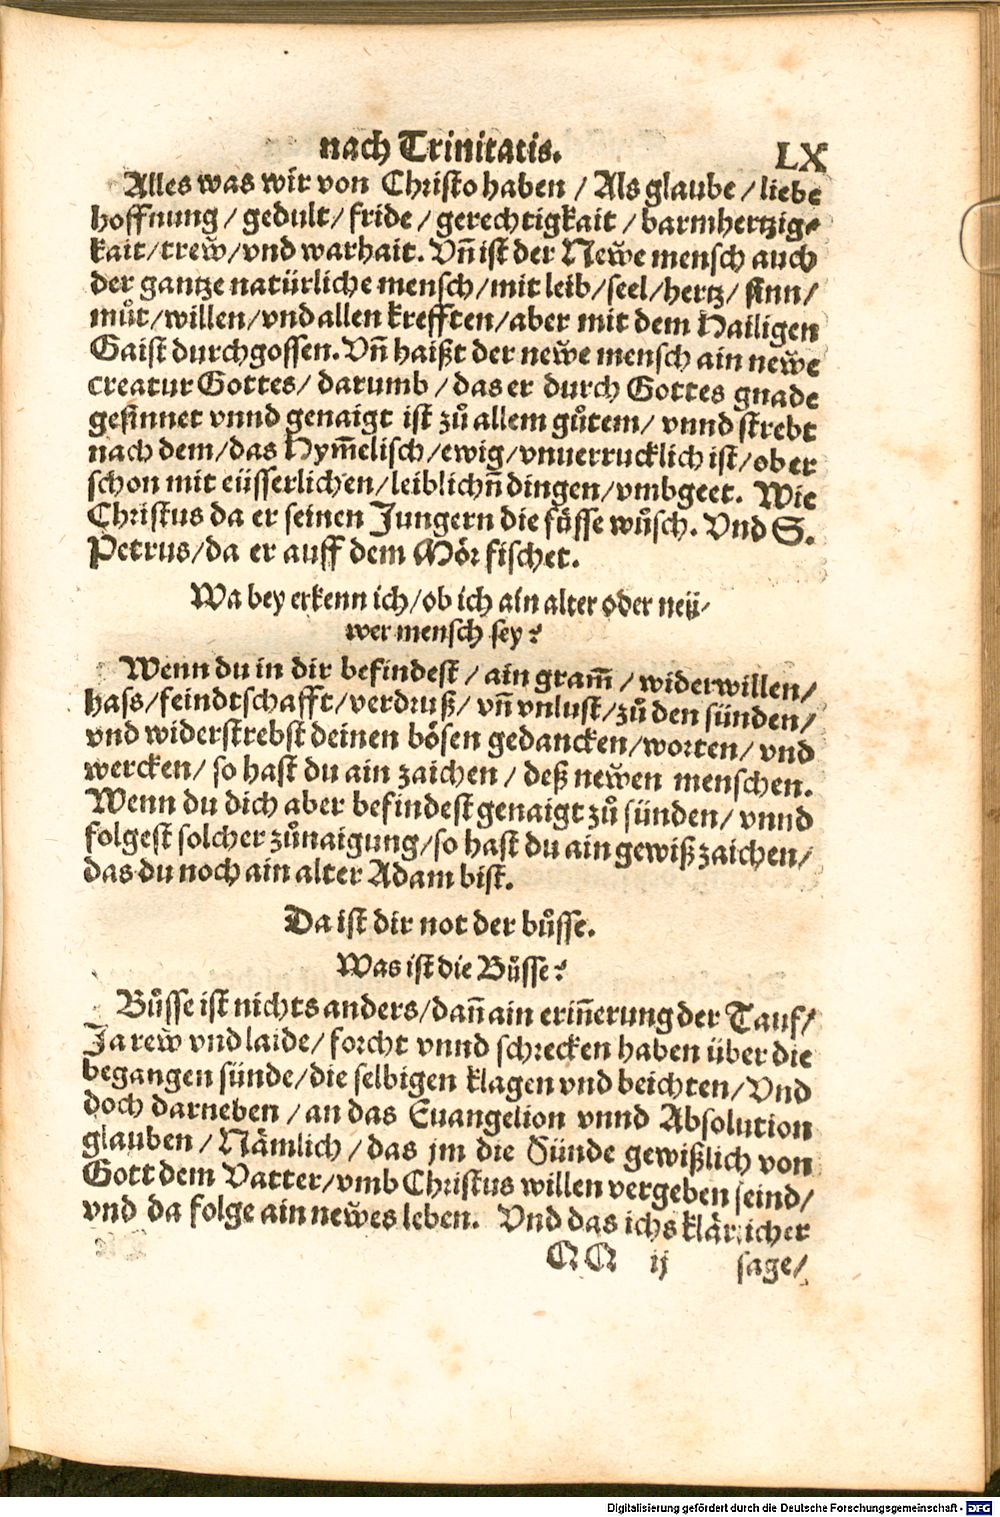 nach Trinitatis.
LX
Alles was wir von Christo haben / Als glaube / liebe
hoffnung / gedult / fride / gerechtigkait / barmhertzig⸗
kait / trew̆ / vnd warhait. Vn̄ ist der New̆e mensch auch
der gantze natürliche mensch / mit leib / seel / hertz / sinn /
můt / willen / vnd allen krefften / aber mit dem Hailigen
Gaist durchgossen. Vn̄ haißt der new̆e mensch ain new̆e
creatur Gottes / darumb / das er durch Gottes gnade
gesinnet vnnd genaigt ist zů allem gůtem / vnnd strebt
nach dem / das Hym̄elisch / ewig / vnuerrucklich ist / ob er
schon mit eüsserlichen / leiblichn̄ dingen / vmbgeet. Wie
Christus da er seinen Jungern die fu̎sse wůsch. Vnd S.
Petrus / da er auff dem Mör fischet.
Wa bey erkenn ich / ob ich ain alter oder neü⸗
wer mensch sey?
Wenn du in dir befindest / ain gram̄ / widerwillen /
hass / feindtschafft / verdruß / vn̄ vnlust / zů den sünden /
vnd widerstrebst deinen bösen gedancken / worten / vnd
wercken / so hast du ain zaichen / deß new̆en menschen.
Wenn du dich aber befindest genaigt zů sünden / vnnd
folgest solcher zůnaigung / so hast du ain gewiß zaichen /
das du noch ain alter Adam bist.
Da ist dir not der bůsse.
Was ist die Bůsse?
Bůsse ist nichts anders / dan̄ ain erin̄erung der Tauf /
Ja rew̆ vnd laide / forcht vnnd schrecken haben über die
begangen sünde / die selbigen klagen vnd beichten / Vnd
doch darneben / an das Euangelion vnnd Absolution
glauben / Nämlich / das jm die Sünde gewißlich von
Gott dem Vatter / vmb Christus willen vergeben seind /
vnd da folge ain new̆es leben. Vnd das ichs klärlicher
QQ ij sage /
Digitalisierung gefördert durch die Deutsche Forschungsgemeinschaft - DFG